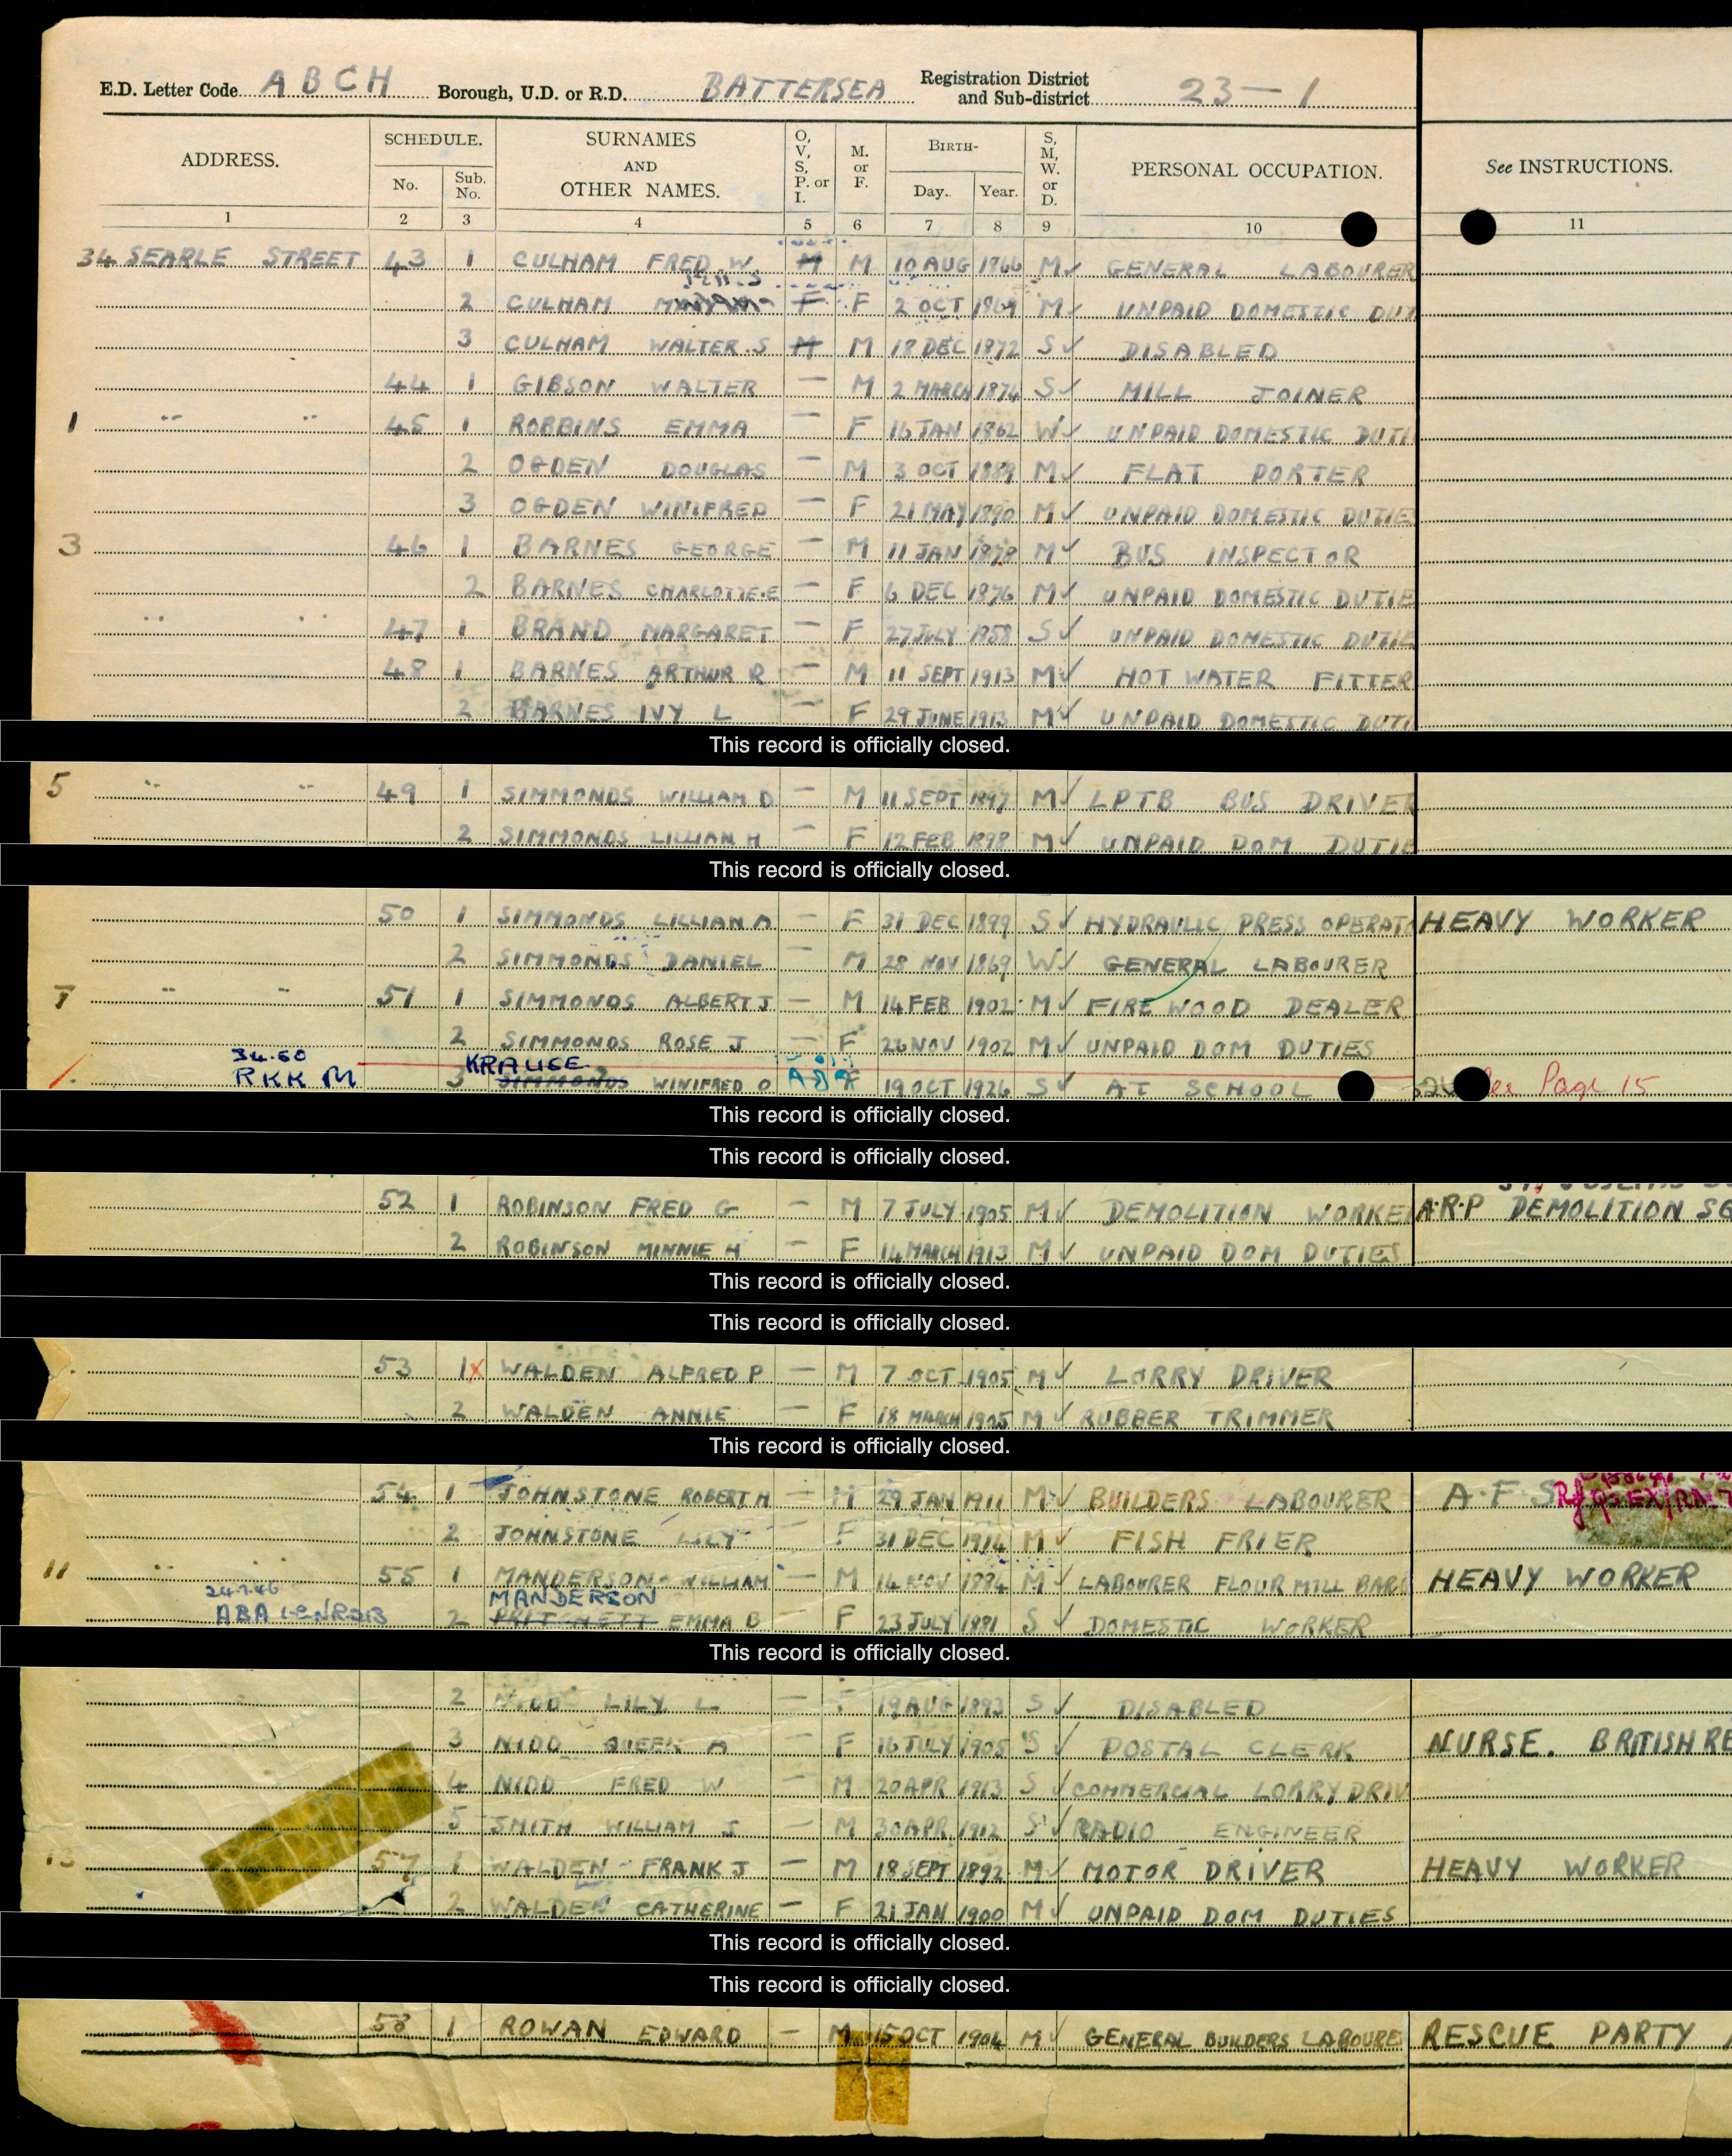 E.D. Letter Code ABCH Borough, U.D. or R.D. BATTERSEA Registration District and Sub-district 23-1
ADDRESS. SCHEDULE. No. Sub. No. SURNAMES AND OTHER NAMES. O, V, S, P. or I. M. or F. BIRTH- Day. Year. S, M, W. or D. PERSONAL OCCUPATION. See INSTRUCTIONS.
1 2 3 4 5 6 7 8 9 10 11
34 SEARLE STREET 43 1 CULHAM FRED W M M 10 AUG 1866 M ✓ GENERAL LABOURER
2 CULHAM F F 2 OCT 1869 M ✓ UNPAID DOMESTIC DUT
3 CULHAM WALTER.S M M 18 DEC 1872 S ✓ DISABLED
44 1 GIBSON WALTER — M 2 MARCH 1874 S ✓ MILL JOINER
1 " " 45 1 ROBBINS EMMA — F 16 JAN 1862 W ✓ UNPAID DOMESTIC DUTI
2 OGDEN DOUGLAS — M 3 OCT 1889 M ✓ FLAT PORTER
3 OGDEN WINIFRED — F 21 MAY 1890 M ✓ UNPAID DOMESTIC DUTIE
3 46 1 BARNES GEORGE — M 11 JAN 1878 M ✓ BUS INSPECTOR
2 BARNES CHARLOTTE.E — F 6 DEC 1876 M ✓ UNPAID DOMESTIC DUTIE
" " 47 1 BRAND MARGARET — F 27 JULY 1858 S ✓ UNPAID DOMESTIC DUTIE
48 1 BARNES ARTHUR R — M 11 SEPT 1913 M ✓ HOT WATER FITTER
2 BARNES IVY L — F 29 JUNE 1913 M ✓ UNPAID DOMESTIC DUTI
This record is officially closed.
5 " " 49 1 SIMMONDS WILLIAM D — M 11 SEPT 1897 M ✓ LPTB BUS DRIVER
2 SIMMONDS LILLIAN H — F 12 FEB 1898 M ✓ UNPAID DOM DUTIE
This record is officially closed.
50 1 SIMMONDS LILLIAN A — F 31 DEC 1899 S ✓ HYDRAULIC PRESS OPERAT HEAVY WORKER
2 SIMMONDS DANIEL — M 28 NOV 1869 W ✓ GENERAL LABOURER
7 " " 51 1 SIMMONDS ALBERT J — M 14 FEB 1902 M ✓ FIRE WOOD DEALER
2 SIMMONDS ROSE J — F 26 NOV 1902 M ✓ UNPAID DOM DUTIES
34.60 KRAUSE
RKK M 3 SIMMONDS WINIFRED O F 19 OCT 1926 S ✓ AT SCHOOL Page 15
This record is officially closed.
This record is officially closed.
52 1 ROBINSON FRED G — M 7 JULY 1905 M ✓ DEMOLITION WORKE A.R.P DEMOLITION SQ
2 ROBINSON MINNIE H — F 14 MARCH 1913 M ✓ UNPAID DOM DUTIES
This record is officially closed.
This record is officially closed.
53 1 X WALDEN ALFRED P — M 7 OCT 1905 M ✓ LORRY DRIVER
2 WALDEN ANNIE — F 18 MARCH 1905 M ✓ RUBBER TRIMMER
This record is officially closed.
54 1 JOHNSTONE ROBERT H — M 29 JAN 1911 M ✓ BUILDERS LABOURER A.F.S
2 JOHNSTONE LILY — F 31 DEC 1914 M ✓ FISH FRIER
11 " " 55 1 MANDERSON WILLIAM — M 14 NOV 1884 M ✓ LABOURER FLOUR MILL HEAVY WORKER
24.7.46 MANDERSON
ABA 2 PRITCHETT EMMA B — F 23 JULY 1881 S ✓ DOMESTIC WORKER
This record is officially closed.
2 NIDD LILY L — F 19 AUG 1893 S ✓ DISABLED
3 NIDD A — F 16 JULY 1905 S ✓ POSTAL CLERK NURSE. BRITISH RE
4 NIDD FRED W — M 20 APR 1913 S ✓ COMMERCIAL LORRY DRIV
5 SMITH WILLIAM J — M 30 APR 1912 S ✓ RADIO ENGINEER
13 57 1 WALDEN FRANK J — M 18 SEPT 1892 M ✓ MOTOR DRIVER HEAVY WORKER
2 WALDEN CATHERINE — F 21 JAN 1900 M ✓ UNPAID DOM DUTIES
This record is officially closed.
This record is officially closed.
58 1 ROWAN EDWARD — M 15 OCT 1904 M ✓ GENERAL BUILDERS LABOURE RESCUE PARTY